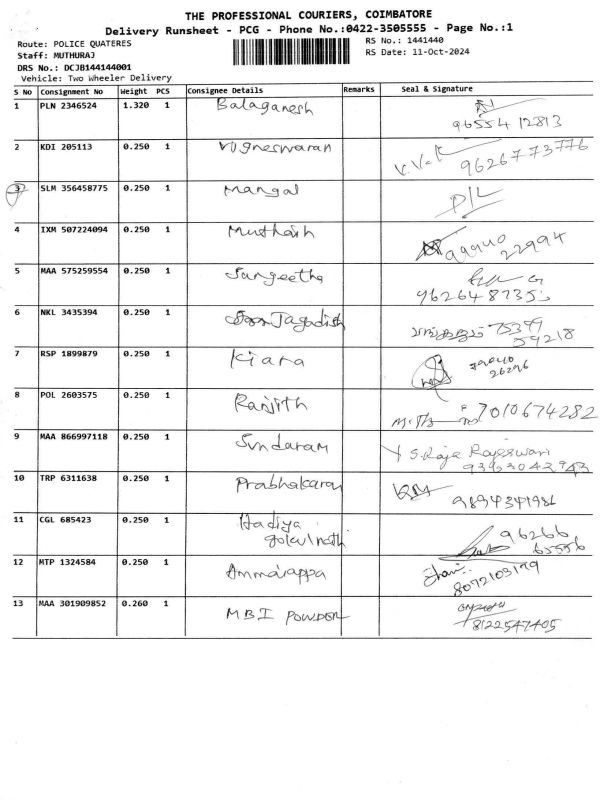 THE PROFESSIONAL COURIERS, COIMBATORE
Delivery Runsheet - PCG - Phone No.:0422-3505555 - Page No.:1
Route: POLICE QUATERES
RS No.: 1441440
Staff: MUTHURAJ
RS Date: 11-Oct-2024
DRS No.: DCJB144144001
Vehicle: Two Wheeler Delivery
S No Consignment No Weight PCS Consignee Details Remarks Seal & Signature
1 PLN 2346524 1.320 1 Balaganesh
96554 12813
2 KDI 205113 0.250 1 Vigneswaran 9626773776
3 SLM 356458775 0.250 1 Mangal
4 IXM 507224094 0.250 1 Muthaiah
22994
5 MAA 575259554 0.250 1 Sangeetha
6 NKL 3435394 0.250 1 Jagadish 75399
59218
7 RSP 1899879 0.250 1 Kiara
26296
8 POL 2603575 0.250 1 Ranjith 7010674282
9 MAA 866997118 0.250 1 Sundaram S. Raja Rajeswari
10 TRP 6311638 0.250 1 Prabhakaran
9894341981
11 CGL 685423 0.250 1 Hadiya 96266
65556
12 MTP 1324584 0.250 1 Ammaiappa
8072103179
13 MAA 301909852 0.260 1 MBI POWDER
8122547405